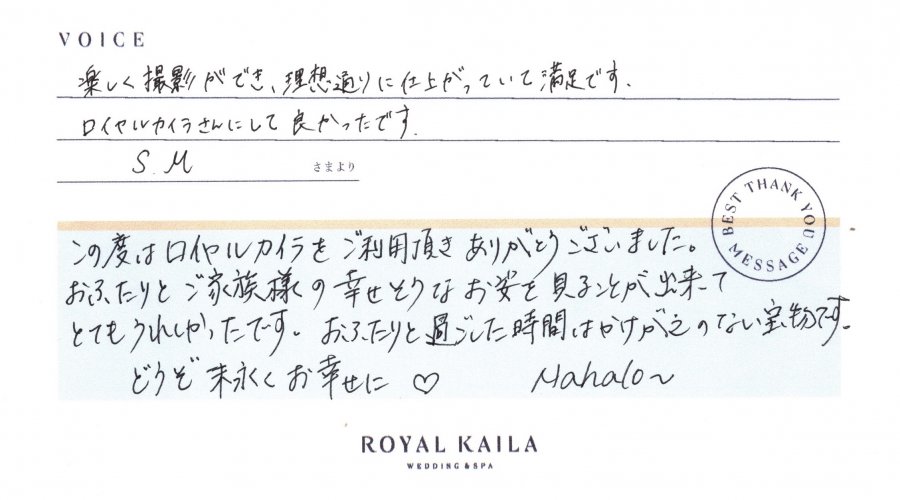 VOICE
楽しく撮影ができ、理想通りに仕上がっていて満足です.
ロイヤルカイラさんにして良かったです.
S.M さまより
BEST THANK YOU MESSAGE
この度はロイヤルカイラをご利用頂きありがとうございました。
おふたりとご家族様の幸せそうなお姿を見ることが出来て
とてもうれしかったです。おふたりと過ごした時間はかけがえのない宝物です。
どうぞ末永くお幸せに ♡ Mahalo~
ROYAL KAILA
WEDDING & SPA